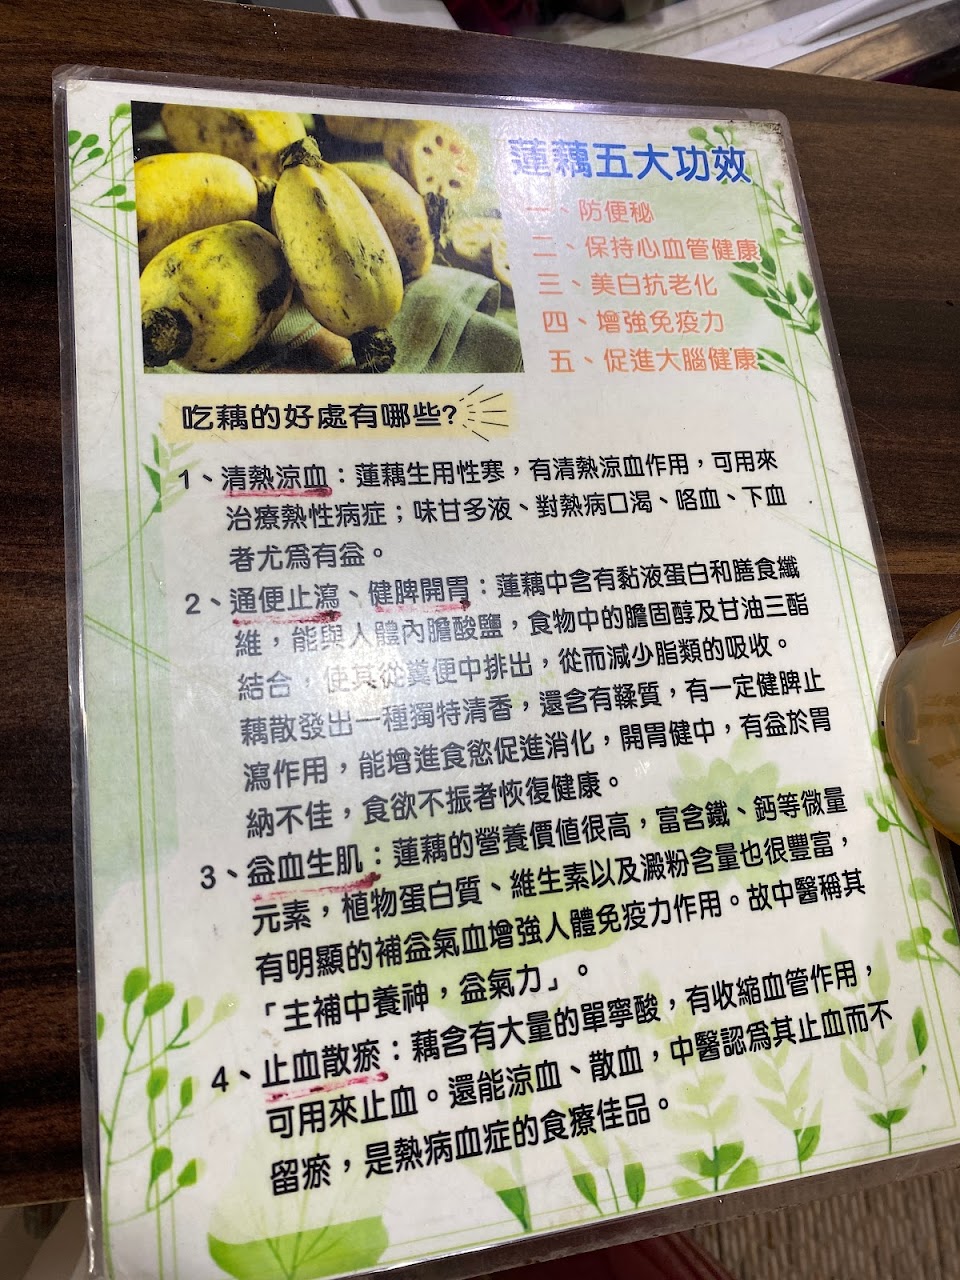 蓮藕五大功效
一、防便秘
二、保持心血管健康
三、美白抗老化
四、增強免疫力
五、促進大腦健康
吃藕的好處有哪些?
1、清熱涼血：蓮藕生用性寒，有清熱涼血作用，可用來
治療熱性病症；味甘多液、對熱病口渴、咯血、下血
者尤為有益。
2、通便止瀉、健脾開胃：蓮藕中含有黏液蛋白和膳食纖
維，能與人體內膽酸鹽，食物中的膽固醇及甘油三酯
結合，使其從糞便中排出，從而減少脂類的吸收。
藕散發出一種獨特清香，還含有鞣質，有一定健脾止
瀉作用，能增進食慾促進消化，開胃健中，有益於胃
納不佳，食欲不振者恢復健康。
3、益血生肌：蓮藕的營養價值很高，富含鐵、鈣等微量
元素，植物蛋白質、維生素以及澱粉含量也很豐富，
有明顯的補益氣血增強人體免疫力作用。故中醫稱其
「主補中養神，益氣力」。
4、止血散瘀：藕含有大量的單寧酸，有收縮血管作用，
可用來止血。還能涼血、散血，中醫認為其止血而不
留瘀，是熱病血症的食療佳品。